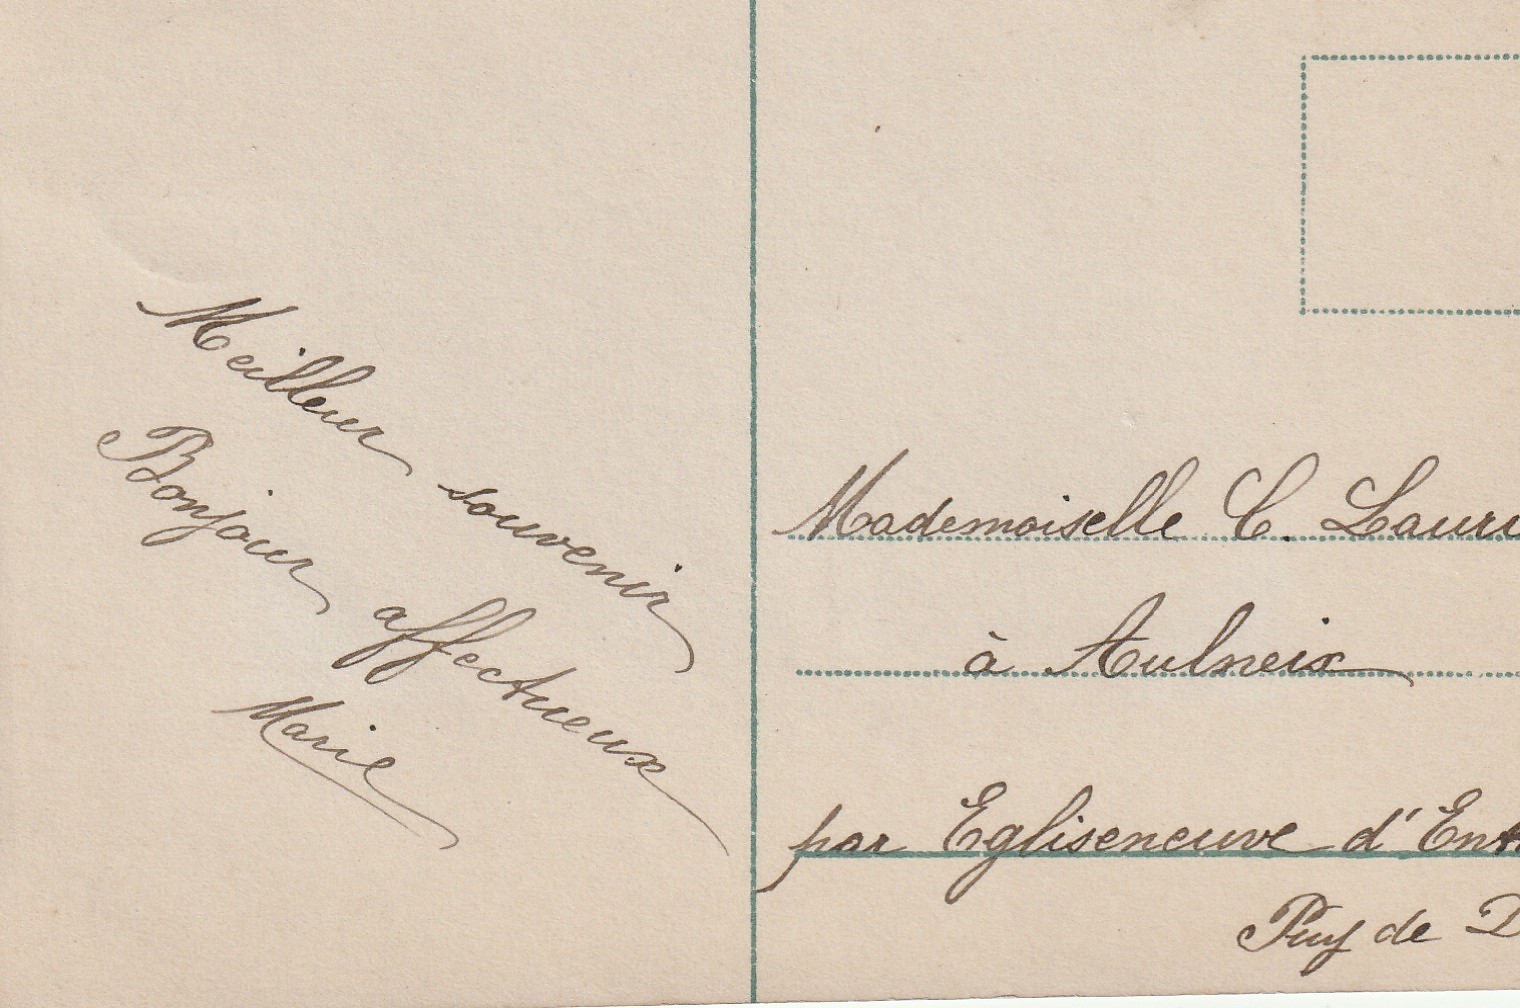 Meilleur souvenir
Bonjour affectueux
Marie
Mademoiselle C. Lauri
à Aulneix
par Egliseneuve d'Ent
Puy de D